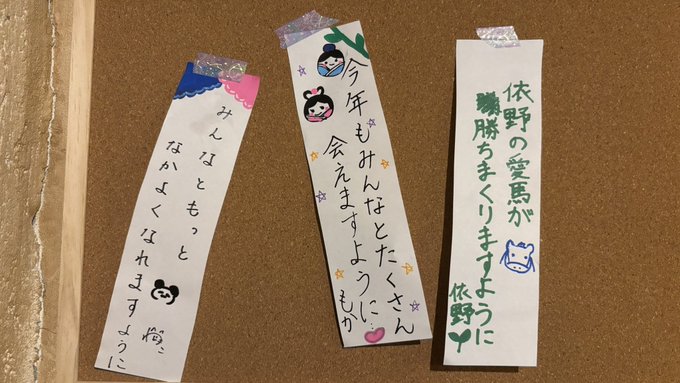 みんなともっと
なかよくなれますように
今年もみんなとたくさん
会えますように…
もか
依野の愛馬が
勝ちまくりますように
依野